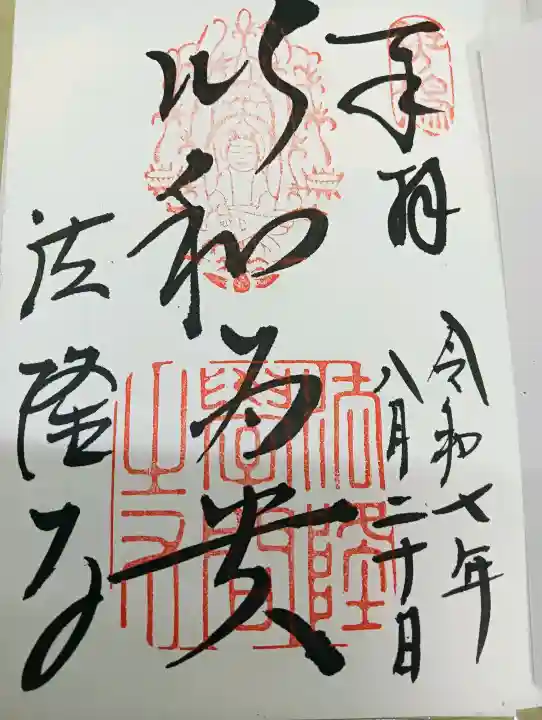 奉拝
令和七年
八月二十日
以和為貴
法隆寺
法隆
學問
之印